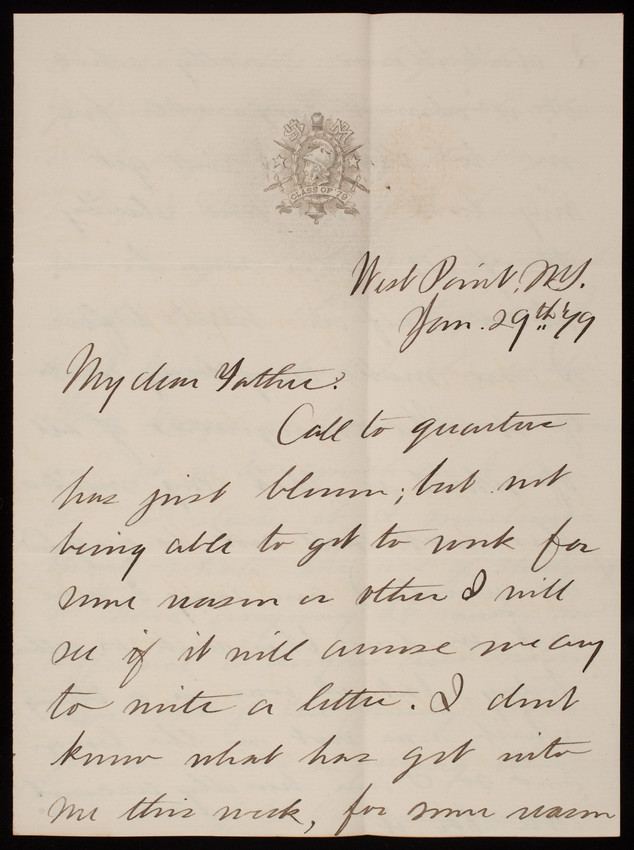 US MA
CLASS OF '79
West Point, N.Y.
Jan. 29th '79
My dear Father:
Call to quarters
has just blown; but not
being able to get to work for
some reason or other I will
see if it will amuse me any
to write a letter. I don't
know what has got into
me this week, for some reason